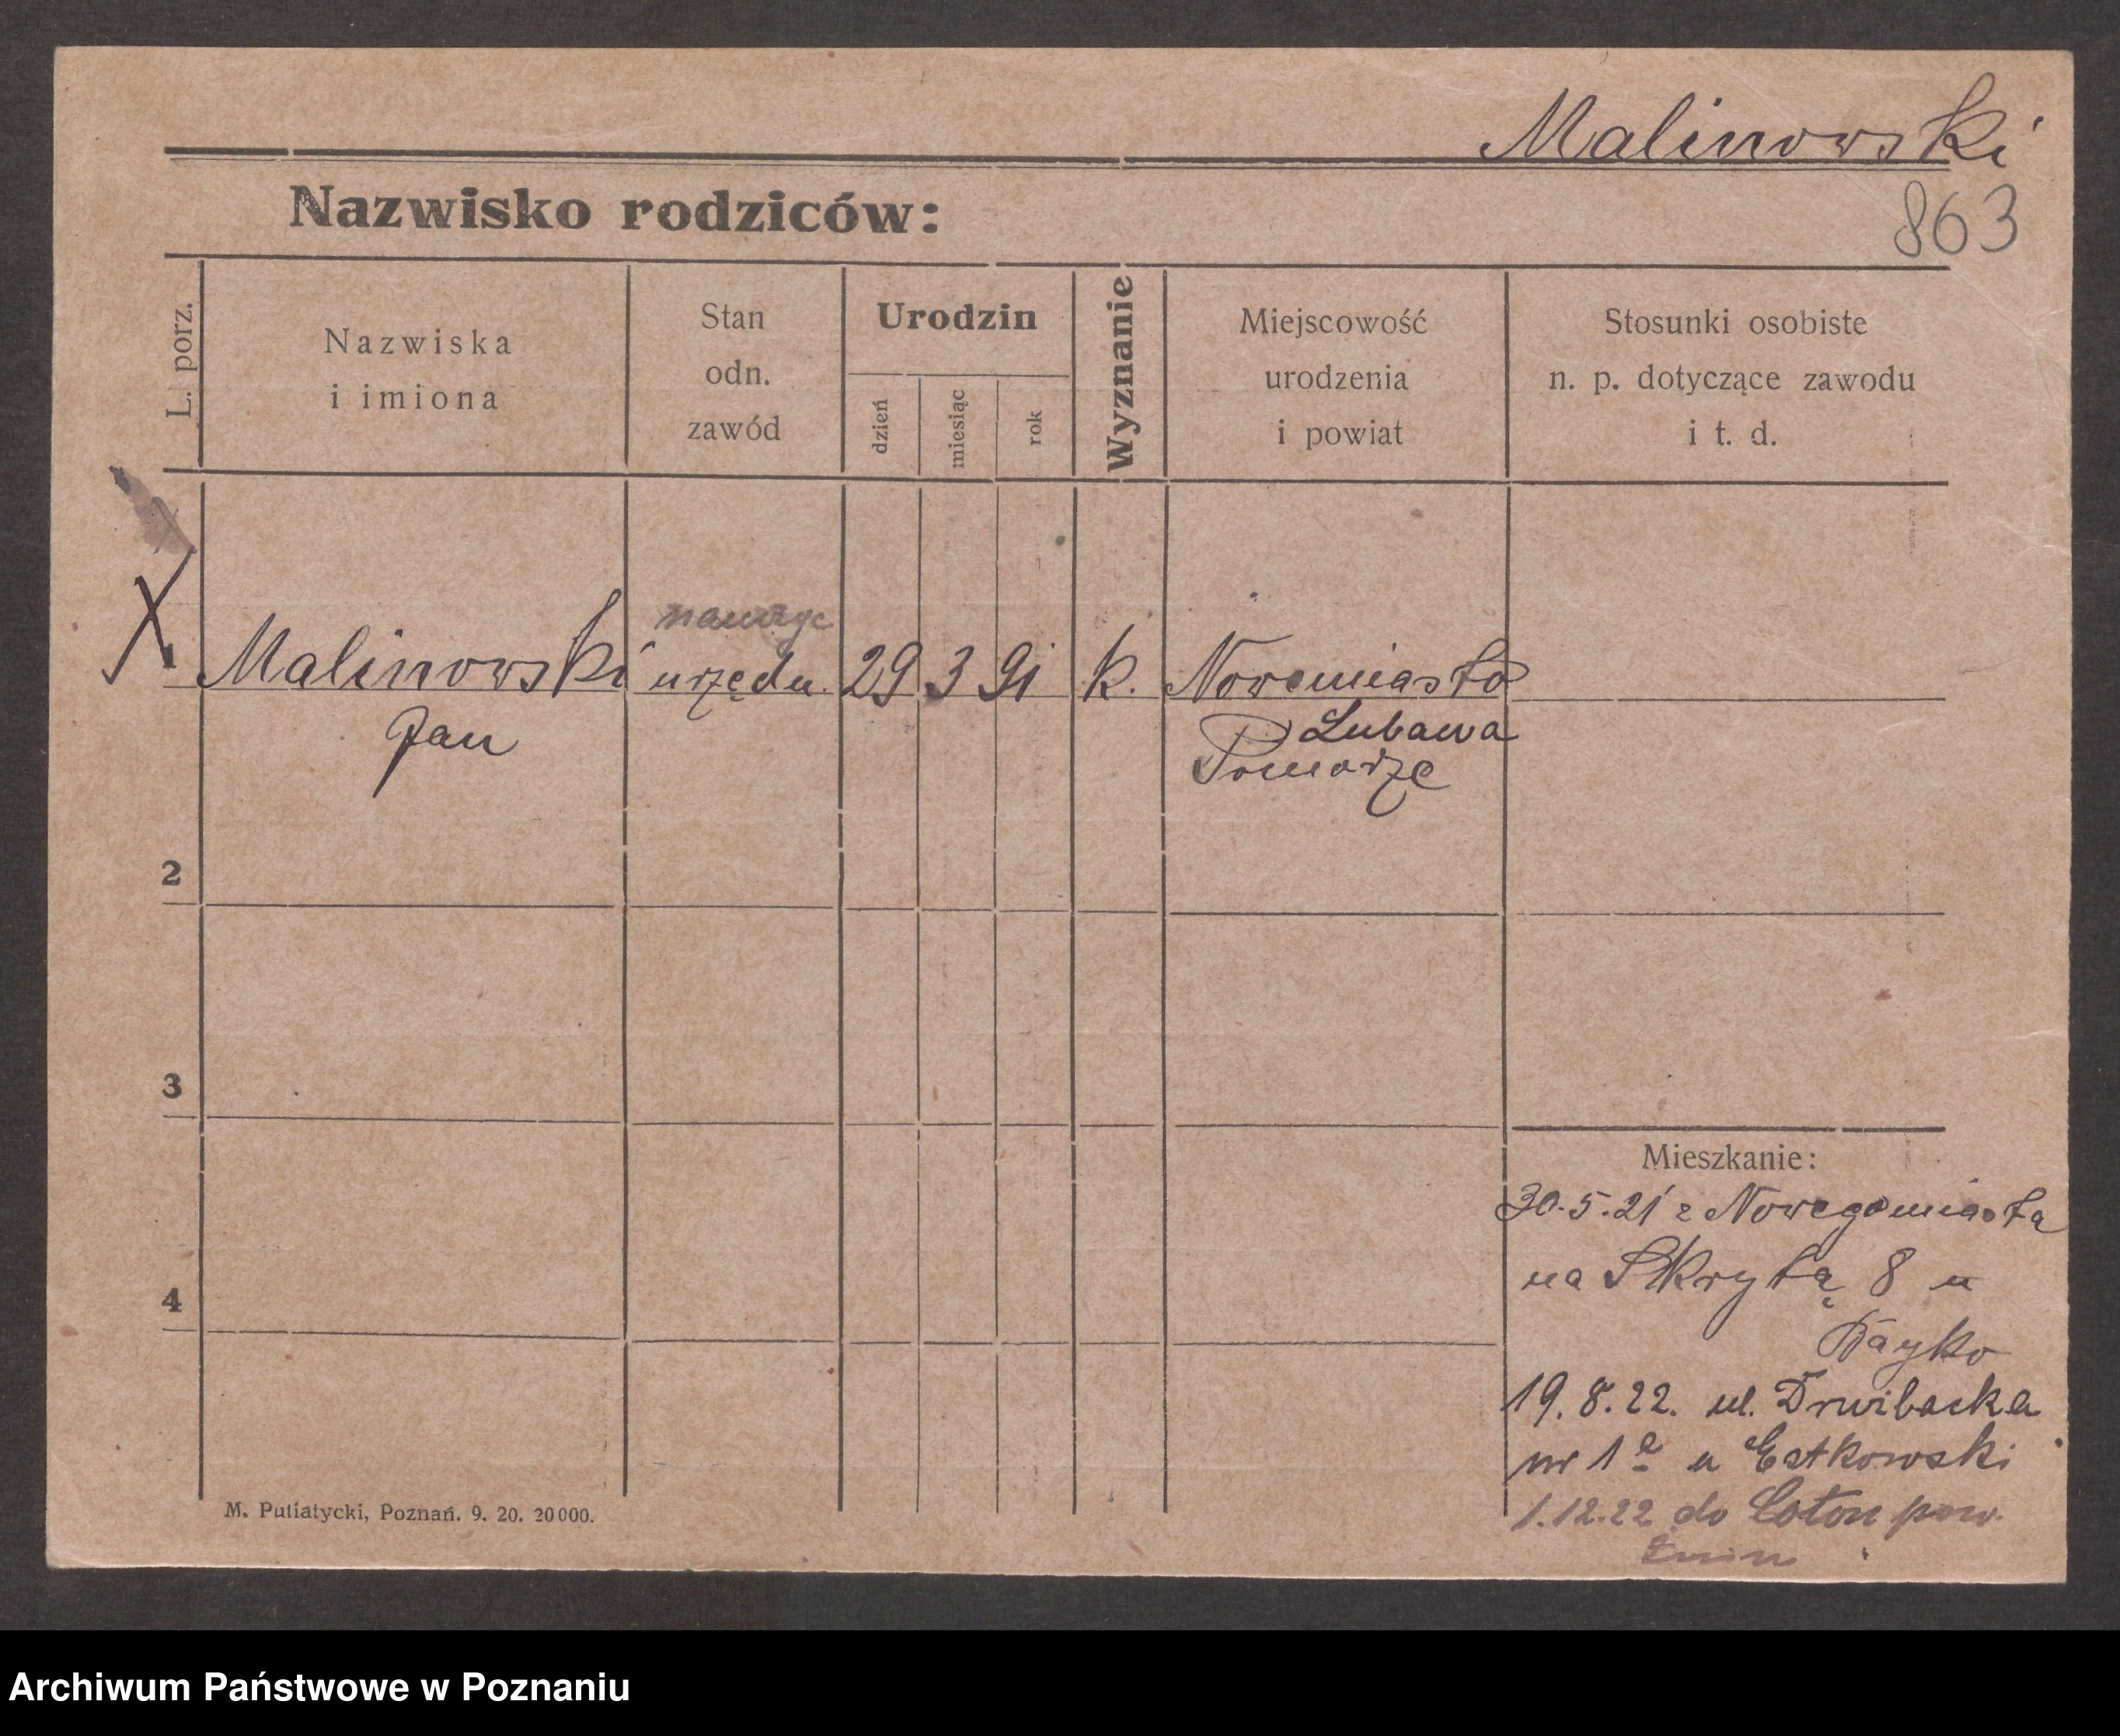 Malinowski
863
Nazwisko rodziców:
L. porz.
Nazwiska
i imiona
Stan
odn.
zawód
Urodzin
dzień
miesiąc
rok
Wyznanie
Miejscowość
urodzenia
i powiat
Stosunki osobiste
n. p. dotyczące zawodu
i t. d.
1 Malinowski urzędn. 29 3 91 k. Nowemiasto
Jan
Lubawa
Pomorze
2
3
4
Mieszkanie:
30.5.21 z Nowegomiasta
na Skrytą 8 u
19.8.22. ul.
nr 1 u
1.12.22 do pow.
Żnin
M. Putiatycki, Poznań. 9. 20. 20000.
Archiwum Państwowe w Poznaniu